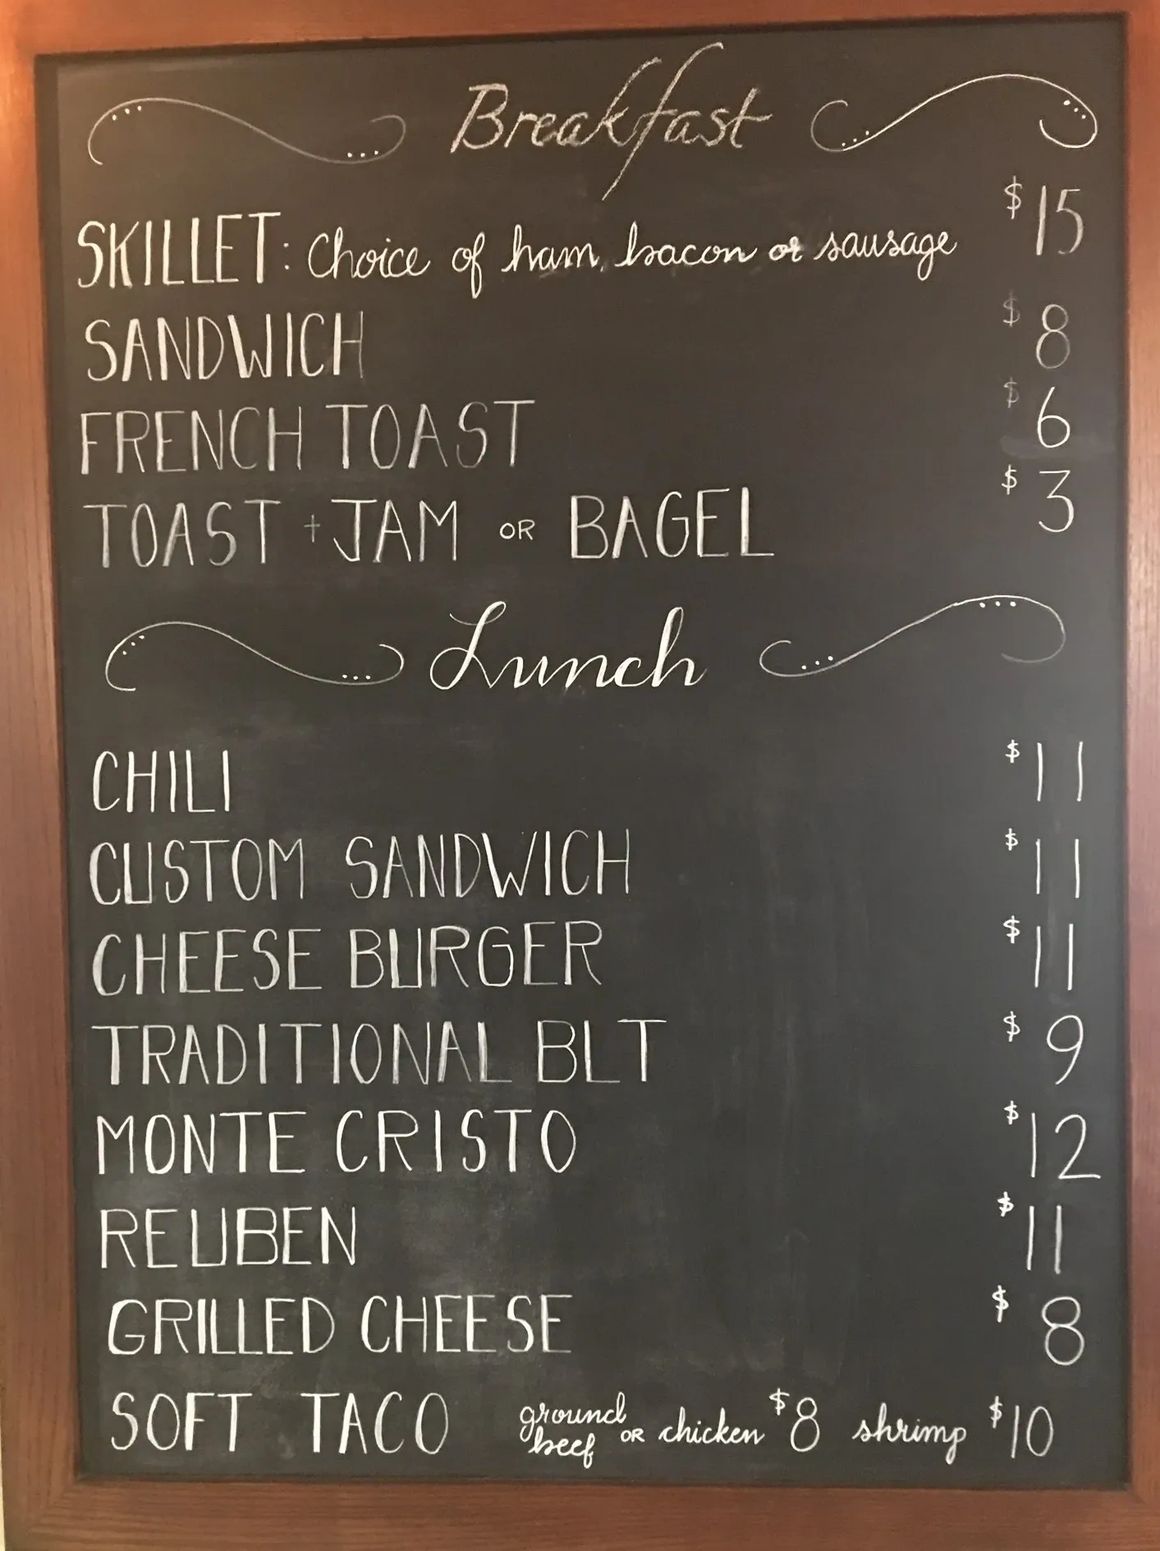 Breakfast
SKILLET: Choice of ham, bacon or sausage $15
SANDWICH $8
FRENCH TOAST $6
TOAST + JAM OR BAGEL $3
Lunch
CHILI $11
CUSTOM SANDWICH $11
CHEESE BURGER $11
TRADITIONAL BLT $9
MONTE CRISTO $12
REUBEN $11
GRILLED CHEESE $8
SOFT TACO ground beef OR chicken $8 shrimp $10